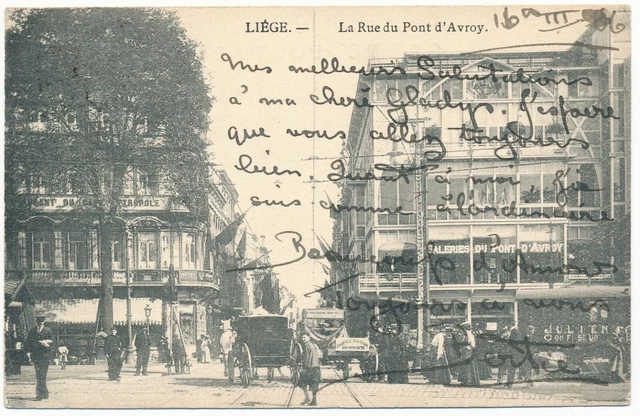 LIÉGE. — La Rue du Pont d'Avroy.
16 III 06
Mes meilleures Salutations
à ma cheré Gladys. J'espére
que vous allez toujours
bien. Quant à moi
suis comme
Beaucoups d'Amour
Toujours a vous
CAFÉ MÉTROPOLE
GALERIES DU PONT D'AVROY
JULIEN
CONFISEUR